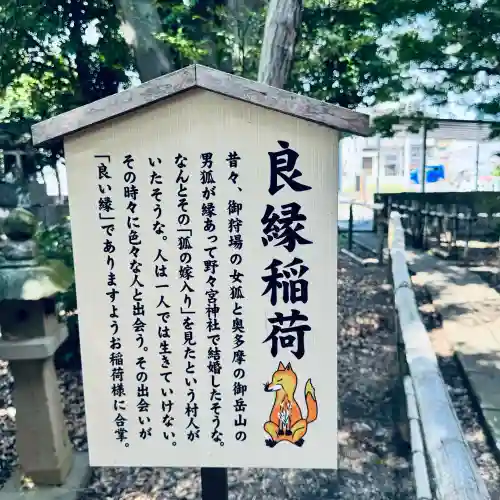 良縁稲荷
昔々、御狩場の女狐と奥多摩の御岳山の
男狐が縁あって野々宮神社で結婚したそうな。
なんとその「狐の嫁入り」を見たという村人が
いたそうな。人は一人では生きていけない。
その時々に色々な人と出会う。その出会いが
「良い縁」でありますようお稲荷様に合掌。